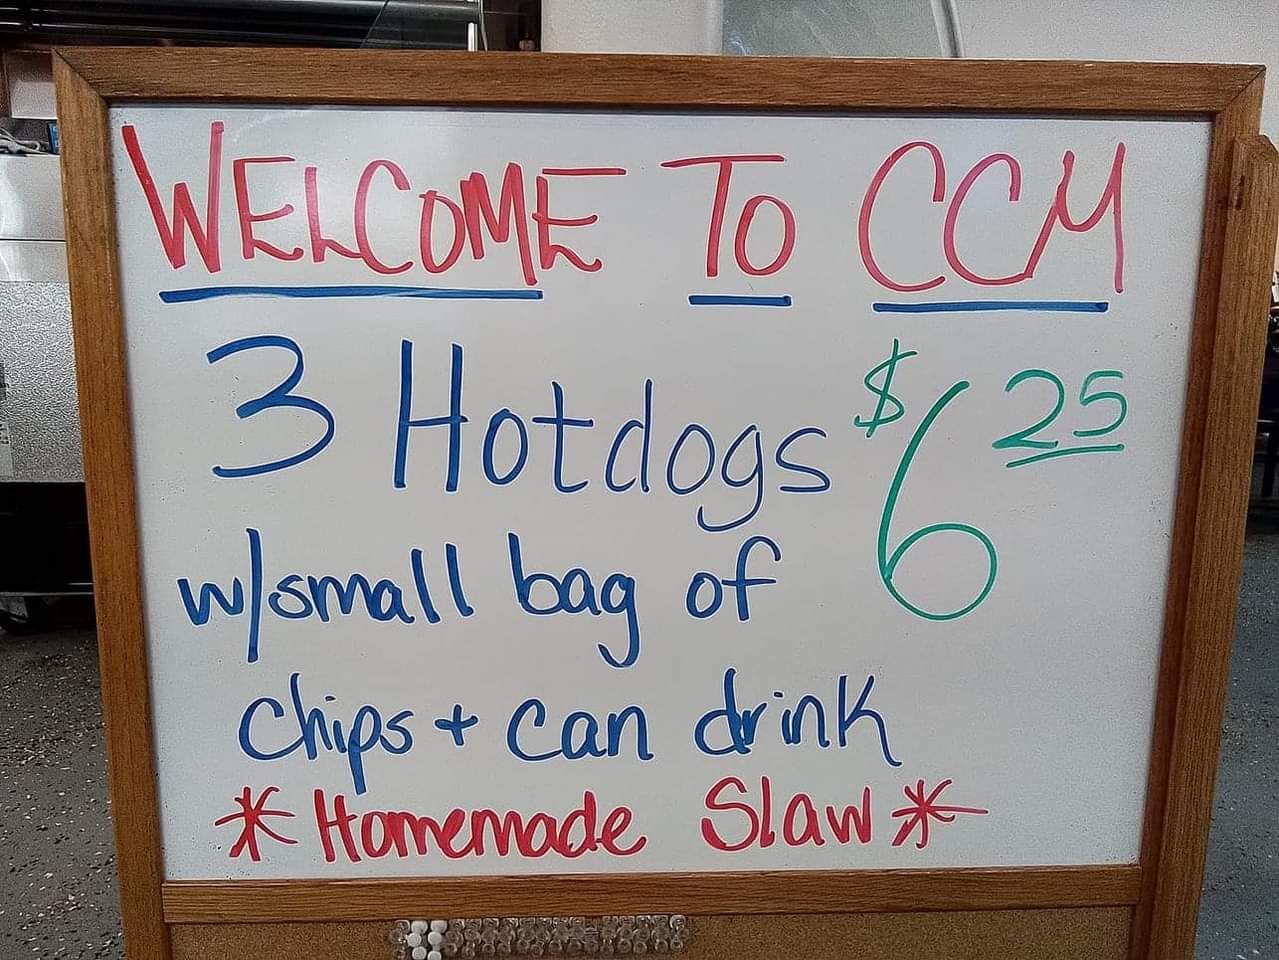 WELCOME TO CCM
3 Hotdogs $6 25
w/small bag of
chips + can drink
*Homemade Slaw*